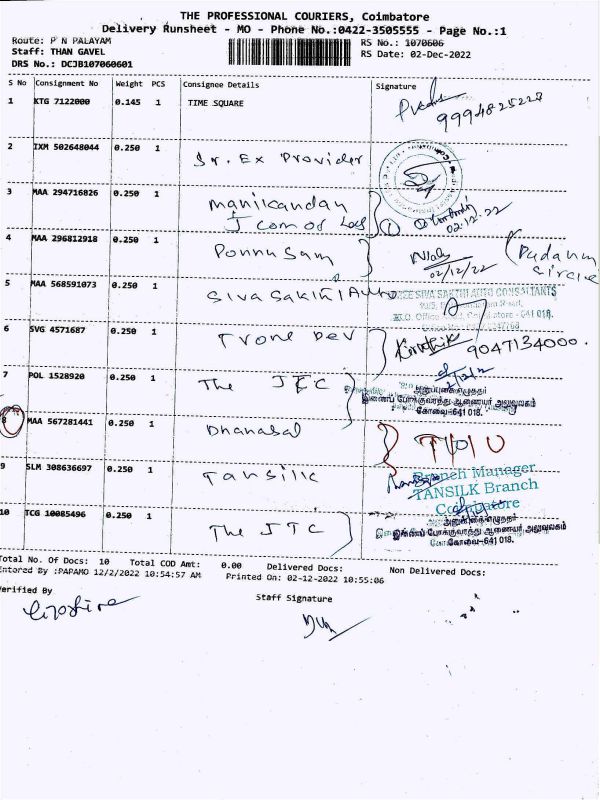 THE PROFESSIONAL COURIERS, Coimbatore
Delivery Runsheet - MO - Phone No.:0422-3505555 - Page No.:1
Route: P N PALAYAM
RS No.: 1070606
Staff: THAN GAVEL
RS Date: 02-Dec-2022
DRS No.: DCJB107060601
S No Consignment No Weight PCS Consignee Details Signature
1 KTG 7122000 0.145 1 TIME SQUARE
9994825227
2 IXM 502648044 0.250 1 Sr. Ex Provider
3 MAA 294716826 0.250 1 Manikandan
J com of
02.12.22
4 MAA 296812918 0.250 1 Ponnu Sam
02/12/22
circle
5 MAA 568591073 0.250 1 Siva Sakthi Auto
SIVA SAKTHI AUTO CONSULTANTS
641 018.
6 SVG 4571687 0.250 1 Tvone Dev
9047134000.
7 POL 1528920 0.250 1 The JTC
இணைப் போக்குவரத்து ஆணையர் அலுவலகம்
கோவை-641 018.
8 MAA 567281441 0.250 1 Dhanabal
9 SLM 308636697 0.250 1 Tansilk
Branch Manager
TANSILK Branch
Coimbatore
10 TCG 10085496 0.250 1 The JTC
ஆணையர் அலுவலகம்
கோவை-641 018.
Total No. Of Docs: 10 Total COD Amt: 0.00 Delivered Docs: Non Delivered Docs:
Entered By :PAPAMO 12/2/2022 10:54:57 AM Printed On: 02-12-2022 10:55:06
Verified By
Staff Signature